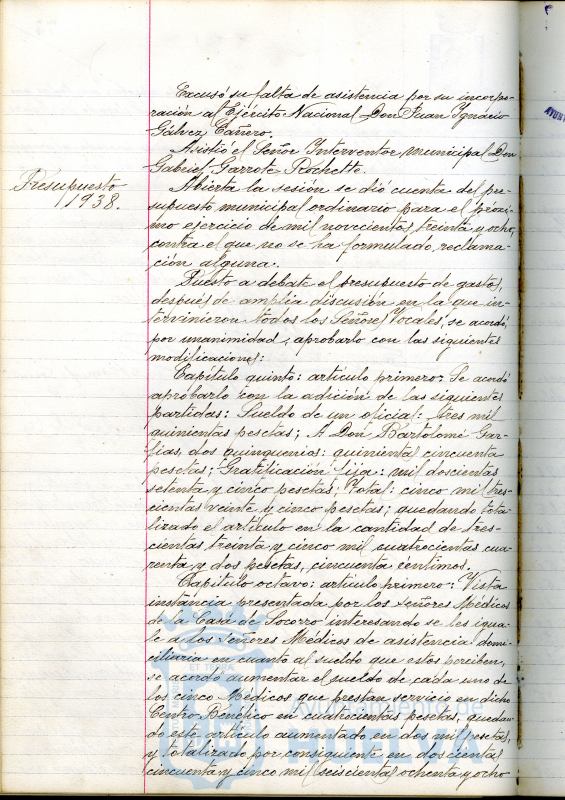 Excusó su falta de asistencia por su incorpo-
ración al Ejército Nacional Don Juan Ygnacio
Gálvez Cañero.
Asistió el Señor Interventor municipal Don
Gabriel Garrote Rochette.
Presupuesto
1938.
Abierta la sesión se dió cuenta del pre-
supuesto municipal ordinario para el próxi-
mo ejercicio de mil novecientos treinta y ocho,
contra el que no se ha formulado reclama-
ción alguna.
Puesto a debate el presupuesto de gastos,
después de amplia discusión en la que in-
tervinieron todos los Señores Vocales, se acordó,
por unanimidad, aprobarlo con las siguientes
modificaciones:
Capítulo quinto: artículo primero: Se acordó
aprobarlo con la adición de las siguientes
partidas: Sueldo de un oficial: tres mil
quinientas pesetas; A Don Bartolomé Gar-
fias, dos quinquenios: quinienta cincuenta
pesetas; Gratificación fija: mil doscientas
setenta y cinco pesetas; Total: cinco mil tres-
cientas veinte y cinco pesetas; quedando tota-
lizado el artículo en la cantidad de tres-
cientas treinta y cinco mil cuatrocientas cua-
renta y dos pesetas, cincuenta céntimos.
Capítulo octavo: artículo primero: Vista
instancia presentada por los señores Médicos
de la Casa de Socorro interesando se les igua-
le a los señores Médicos de asistencia domi-
ciliaria en cuanto al sueldo que estos perciben,
se acordó aumentar el sueldo de cada uno de
los cinco Médicos que prestan servicio en dicho
Centro Benéfico en cuatrocientas pesetas, quedan-
do este artículo aumentado en dos mil pesetas,
y totalizado por consiguiente en doscientas
cincuenta y cinco mil seiscientas ochenta y ocho
Ayuntamiento de
HUELVA